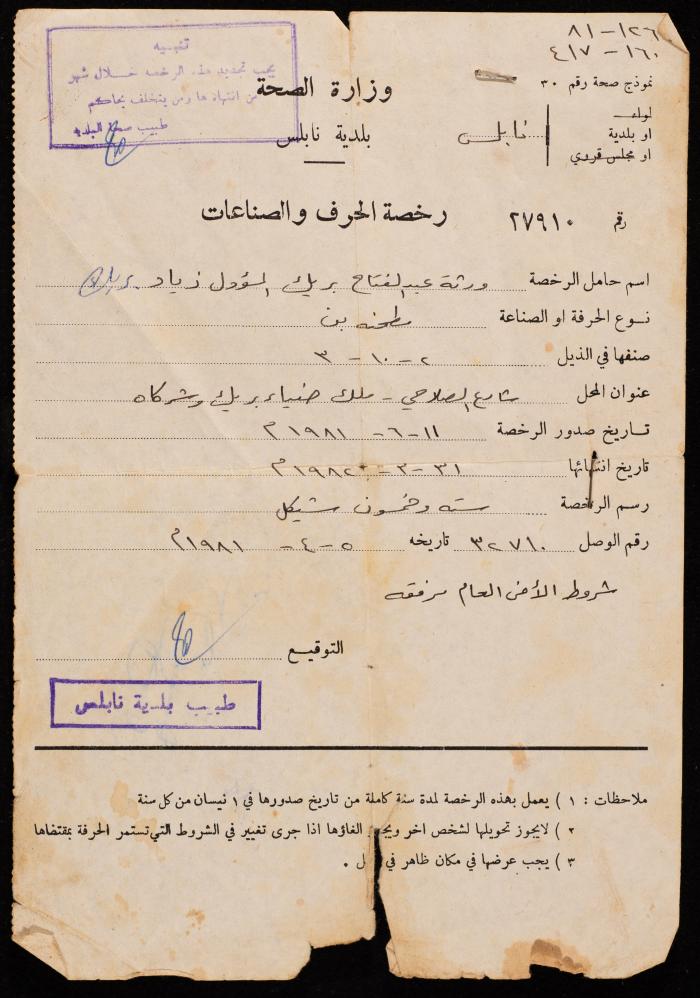 ١٢٦-٨١
١٦٠-٤١٧
تنبيه
يجب تجديد هذه الرخصه خلال شهر
من انتهاءها ومن يتخلف يحاكم
طبيب صحة البلديه
نموذج صحة رقم ٣٠
وزارة الصحة
لواء
او بلدية نابلس
او مجلس قروي
بلدية نابلس
رقم ٢٧٩١٠
رخصة الحرف والصناعات
اسم حامل الرخصة ورثة عبد الفتاح بريك المسؤول زياد بريك
نوع الحرفة او الصناعة مطحنه بن
صنفها في الذيل ٢-١٠-٣
عنوان المحل شارع الصلاحي - ملك ضياء بريك وشركاه
تاريخ صدور الرخصة ١١-٦-١٩٨١م
تاريخ انتهائها ٣١-٣-١٩٨٢م
رسم الرخصة سته وخمسون شيكل
رقم الوصل ٣٢٧١٠ تاريخه ٥-٤-١٩٨١م
شروط الأمن العام مرفقه
التوقيع
طبيب بلدية نابلس
ملاحظات : ١ ) يعمل بهذه الرخصة لمدة سنة كاملة من تاريخ صدورها في ١ نيسان من كل سنة
٢ ) لايجوز تحويلها لشخص اخر الغاؤها اذا جرى تغيير في الشروط التي تستمر الحرفة بمقتضاها
٣ ) يجب عرضها في مكان ظاهر في .